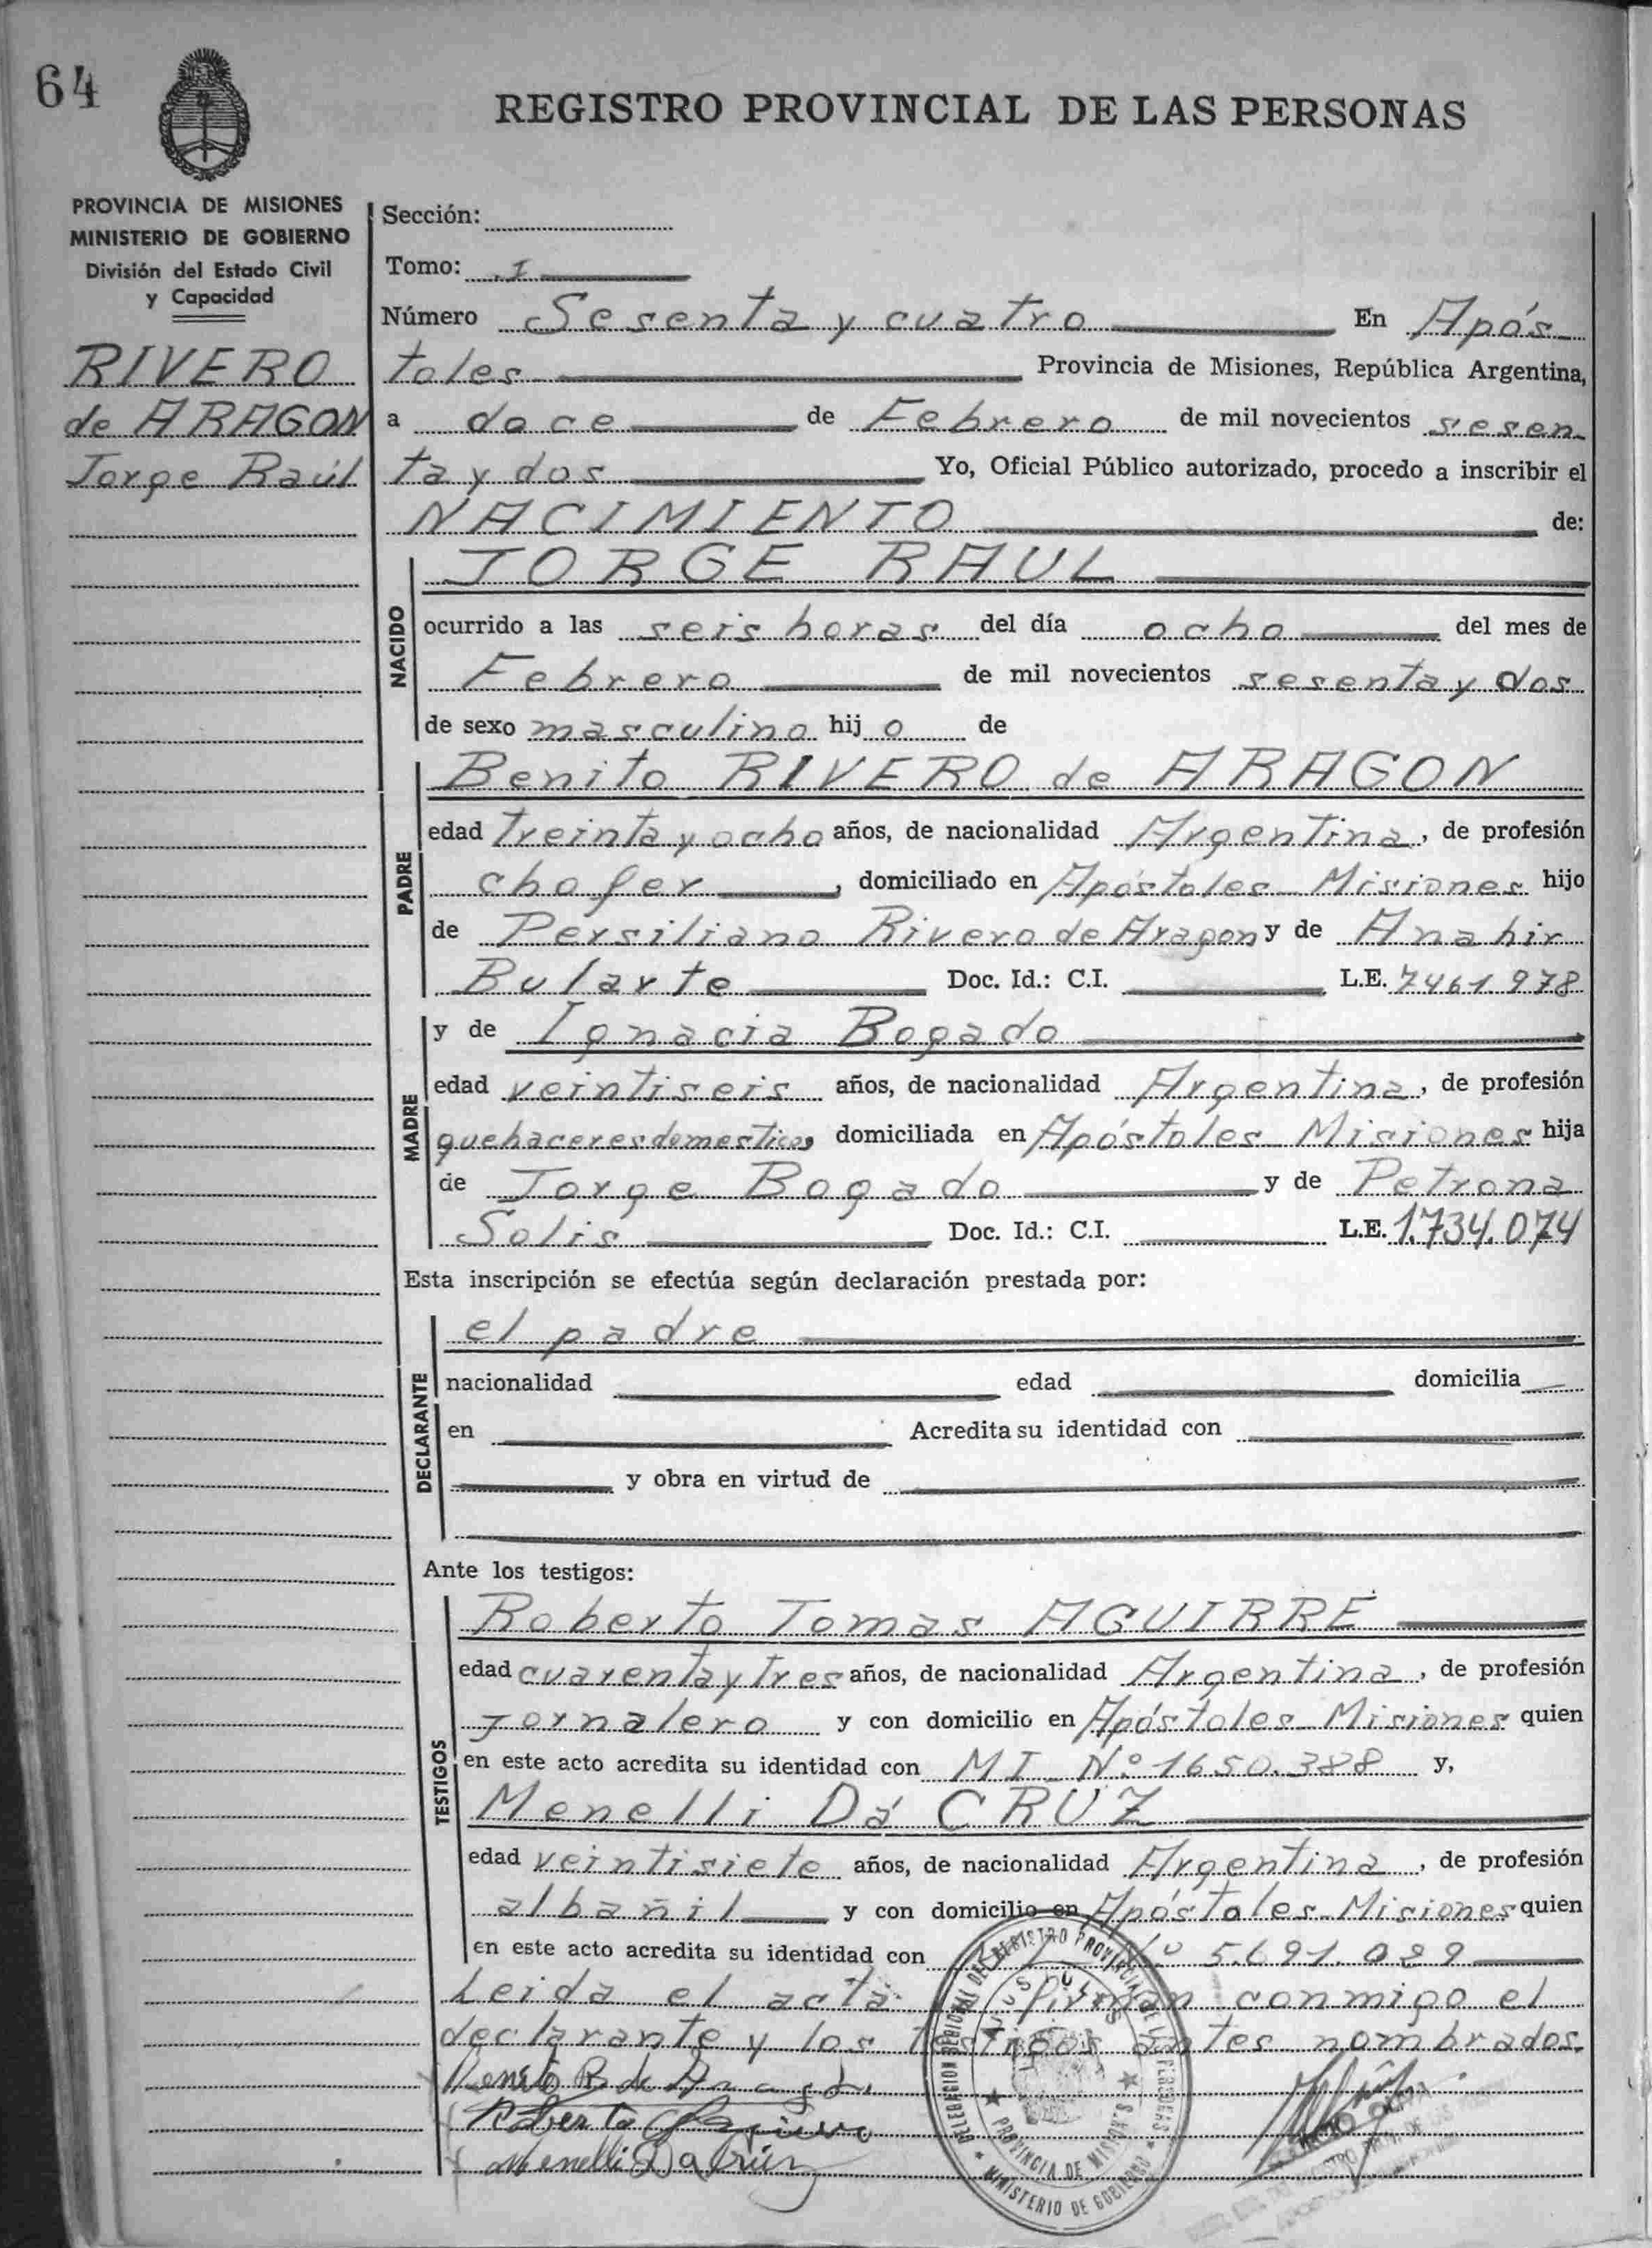 64
REGISTRO PROVINCIAL DE LAS PERSONAS
PROVINCIA DE MISIONES
MINISTERIO DE GOBIERNO
División del Estado Civil
y Capacidad
RIVERO
de ARAGON
Jorge Raúl
Sección:
Tomo: I
Número Sesenta y cuatro En Após
toles Provincia de Misiones, República Argentina,
a doce de Febrero de mil novecientos sesen
ta y dos Yo, Oficial Público autorizado, procedo a inscribir el
NACIMIENTO de:
NACIDO
JORGE RAUL
ocurrido a las seis horas del día ocho del mes de
Febrero de mil novecientos sesenta y dos
de sexo masculino hij o de
PADRE
Benito RIVERO de ARAGON
edad treinta y ocho años, de nacionalidad Argentina, de profesión
chofer, domiciliado en Apóstoles Misiones hijo
de Persiliano Rivero de Aragon y de Anahir
Bularte Doc. Id.: C.I. L.E. 7461.978
MADRE
y de Ignacia Bogado
edad veintiseis años, de nacionalidad Argentina, de profesión
quehaceres domesticos domiciliada en Apóstoles Misiones hija
de Jorge Bogado y de Petrona
Solis Doc. Id.: C.I. L.E. 1.734.074
Esta inscripción se efectúa según declaración prestada por:
DECLARANTE
el padre
nacionalidad edad domicilia
en Acredita su identidad con
y obra en virtud de
Ante los testigos:
TESTIGOS
Roberto Tomas AGUIRRE
edad cuarenta y tres años, de nacionalidad Argentina, de profesión
jornalero y con domicilio en Apóstoles Misiones quien
en este acto acredita su identidad con MI Nº 1650.388 y,
Menelli Dá CRUZ
edad veintisiete años, de nacionalidad Argentina, de profesión
albañil y con domicilio en Apóstoles Misiones quien
en este acto acredita su identidad con Nº 5.691.029
Leida el acta firman conmigo el
declarante y los testigos antes nombrados.
Benito R de Aragon
Roberto Aguirre
Menelli Da Cruz
DELEGACION DEL REGISTRO PROVINCIAL DE LAS PERSONAS
PROVINCIA DE MISIONES
MINISTERIO DE GOBIERNO